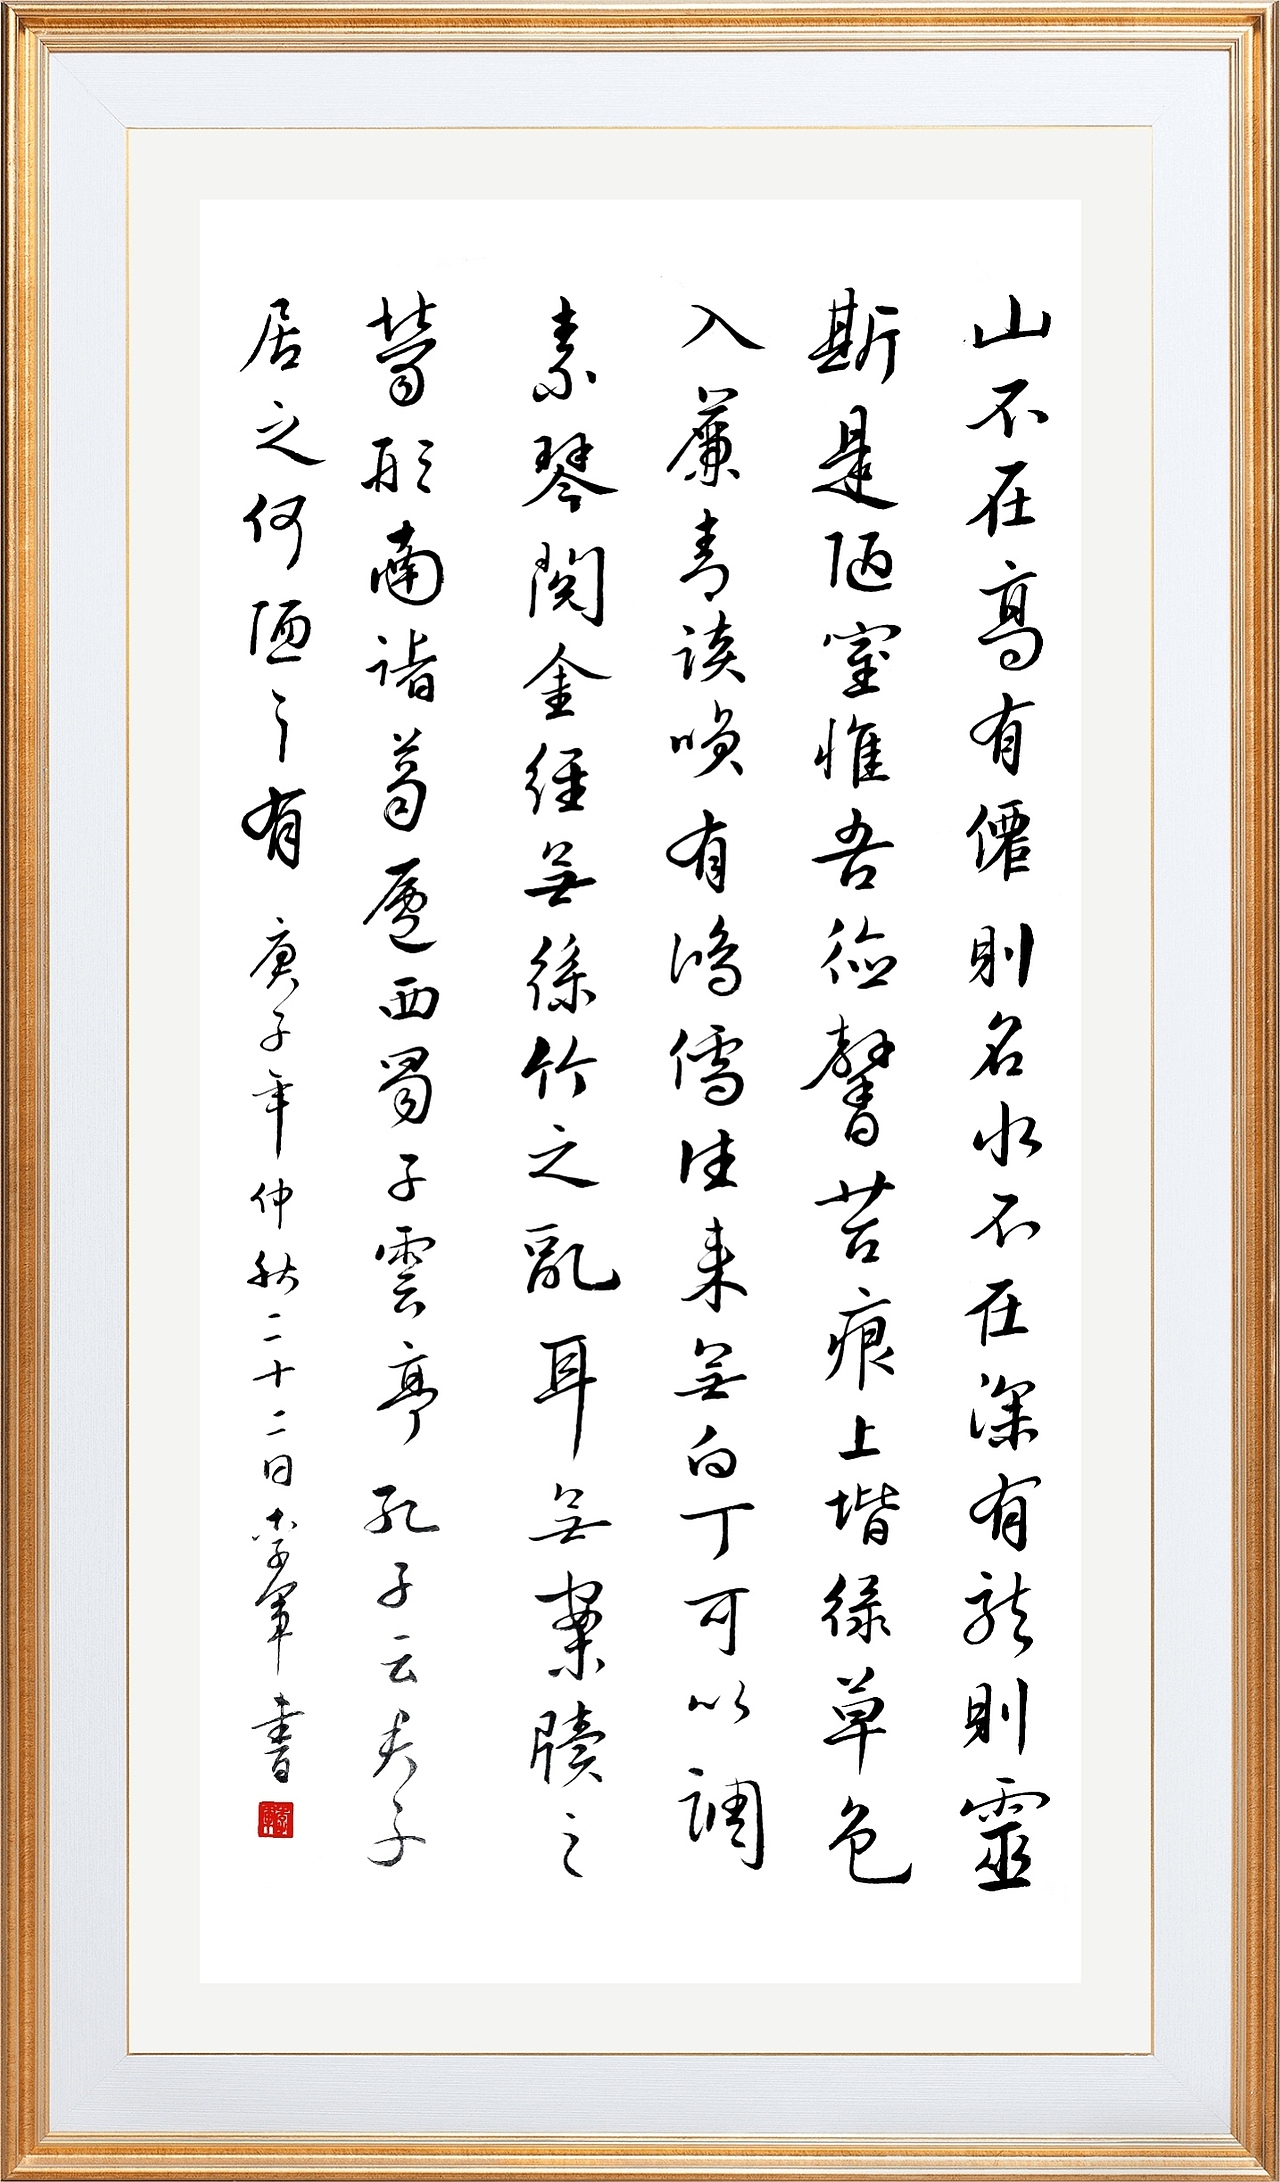 山不在高有僊則名水不在深有龍則靈
斯是陋室惟吾德馨苔痕上堦緑草色
入簾青談咲有鴻儒往来無白丁可以調
素琴閲金經無絲竹之亂耳無案牘之
勞形南諸葛廬西蜀子雲亭孔子云夫子
居之何陋之有 庚子年仲秋二十二日李軍書